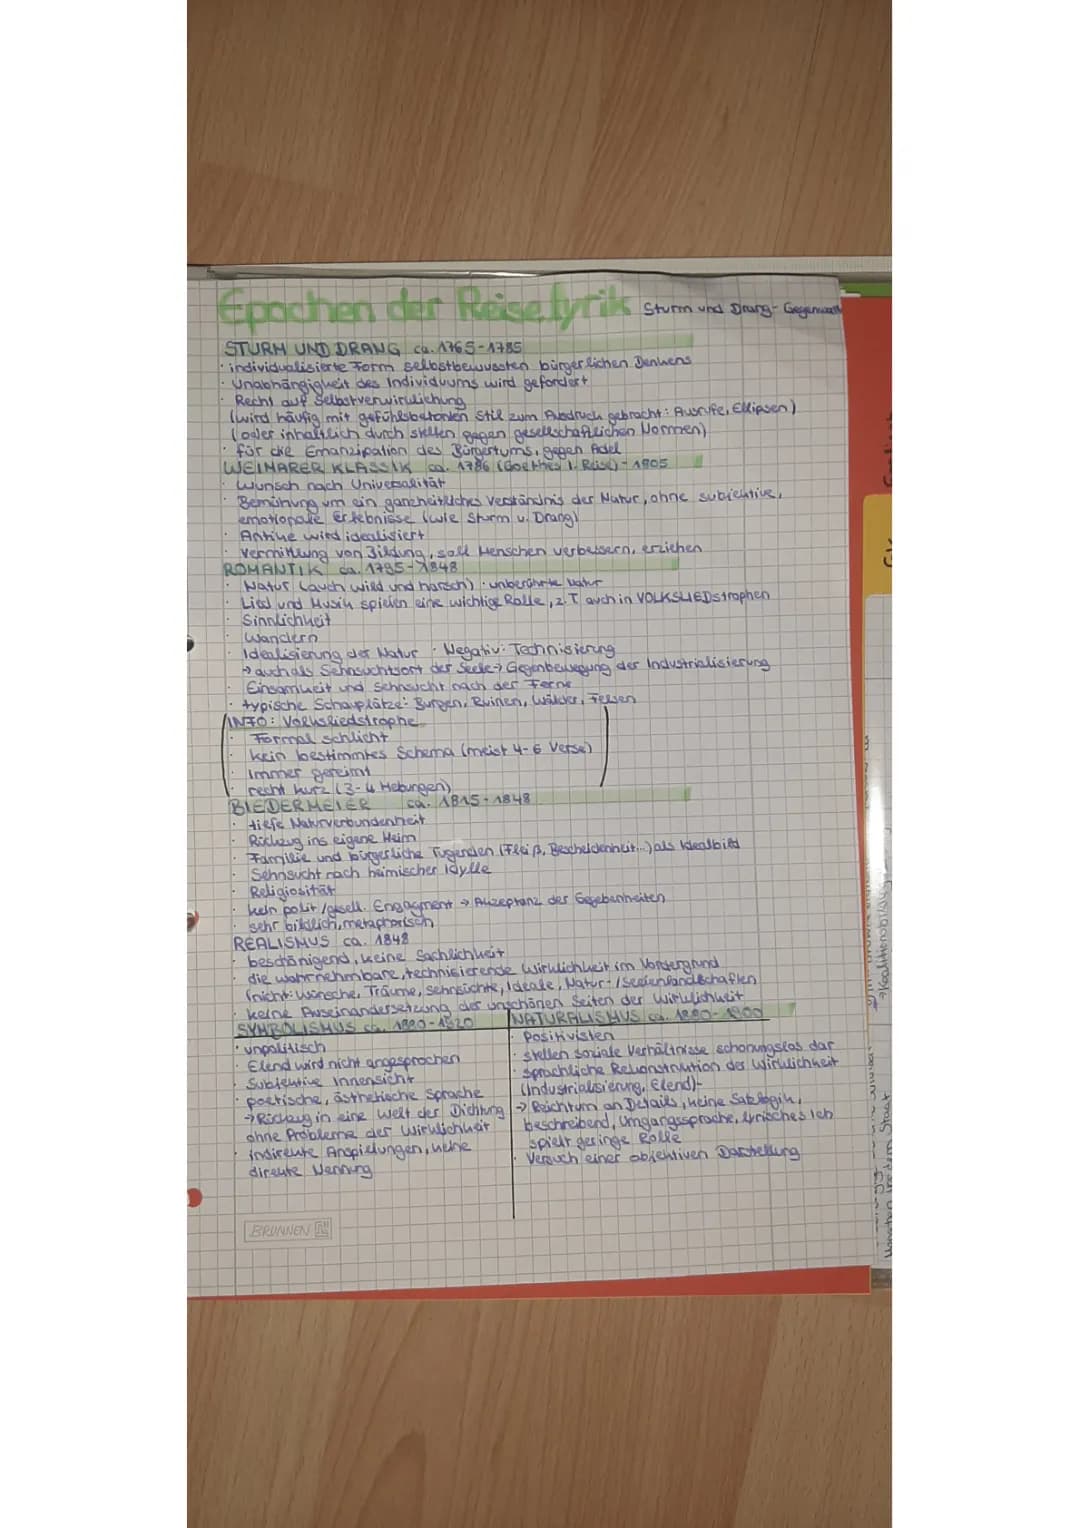 Epochen der Reiselyrik Sturm und Drang - Gegenwart
STURM UND DRANG ca. 1765-1785
· individualisierte Form selbstbewussten bürgerlichen Denkens
· Unabhängigkeit des Individuums wird gefordert
· Recht auf Selbstverwirklichung
(wird häufig mit gefühlsbetonten Stil zum Ausdruck gebracht: Ausrufe, Ellipsen)
(oder inhaltlich durch stellen gegen gesellschaftlichen Normen)
· für die Emanzipation des Bürgertums, gegen Adel
WEIMARER KLASSIK ca. 1786 (Goethes 1. Reise) - 1805
· Wunsch nach Universalität
· Bemühung um ein ganzheitliches Verständnis der Natur, ohne subjektive,
emotionale Erlebnisse (wie Sturm u. Drang)
· Antike wird idealisiert
· Vermittlung von Bildung, soll Menschen verbessern, erziehen
ROMANTIK ca. 1795-1848
· Natur (auch wild und harsch) · unberührte Natur
· Lied und Musik spielen eine wichtige Rolle, z.T auch in VOLKSLIEDstrophen
· Sinnlichkeit
· Wandern
· Idealisierung der Natur · Negativ: Technisierung
→ auch als Sehnsuchtsort der Seele → Gegenbewegung der Industrialisierung
· Einsamkeit und Sehnsucht nach der Ferne
· typische Schauplätze: Burgen, Ruinen, Wälder, Felsen
INFO: Volksliedstrophe
· Formal schlicht
· kein bestimmtes Schema (meist 4-6 Verse)
· immer gereimt
· recht kurz (3-4 Hebungen)
BIEDERMEIER ca. 1815-1848
· tiefe Naturverbundenheit
· Rückzug ins eigene Heim
· Familie und bürgerliche Tugenden (Fleiß, Bescheidenheit...) als Idealbild
· Sehnsucht nach heimischer Idylle
· Religiosität
· kein polit./gesell. Engagment → Akzeptanz der Gegebenheiten
· sehr bildlich, metaphorisch
REALISMUS ca. 1848
· beschönigend, keine Sachlichkeit
· die wahrnehmbare, technisierende Wirklichkeit im Vordergrund
(nicht: Wünsche, Träume, Sehnsüchte, Ideale, Natur-/Seelenlandschaften
· keine Auseinandersetzung der unschönen Seiten der Wirklichkeit
SYMBOLISMUS ca. 1890-1920
· unpolitisch
· Elend wird nicht angesprochen
· Subjektive Innensicht
· poetische, ästhetische Sprache
→ Rückzug in eine Welt der Dichtung
ohne Probleme der Wirklichkeit
· indirekte Anspielungen, keine
direkte Nennung
NATURALISMUS ca. 1880-1900
· Positivisten
· stellen soziale Verhältnisse schonungslos dar
· sprachliche Rekonstruktion der Wirklichkeit
(Industrialisierung, Elend)
→ Reichtum an Details, keine Satzlogik,
beschreibend, Umgangssprache, lyrisches Ich
spielt geringe Rolle
· Versuch einer objektiven Darstellung
BRUNNEN